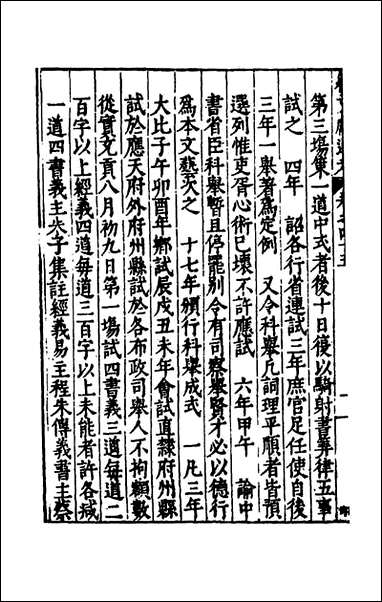 第三塲策一道中式者後十日復以騎射書筭律五事
試之　四年　詔各行省連試三年庶官足任使自後
三年一舉著爲定例　又令科舉凡詞理平順者皆預
選列惟吏胥心術已壞不許應試　六年甲午　諭中
書省臣科舉暫且停罷别令有司察舉賢才必以德行
爲本文藝次之　十七年頒行科舉成式　一凡三年
大比子午卯酉年鄉試辰戌丑未年會試直隷府州縣
試於應天府外府州縣試於各布政司舉人不拘額數
從實充貢八月初九日第一塲試四書義三道每道二
百字以上經義四道每道三百字以上未能者許各减
一道四書義主朱子集註經義易主程朱傳義書主蔡